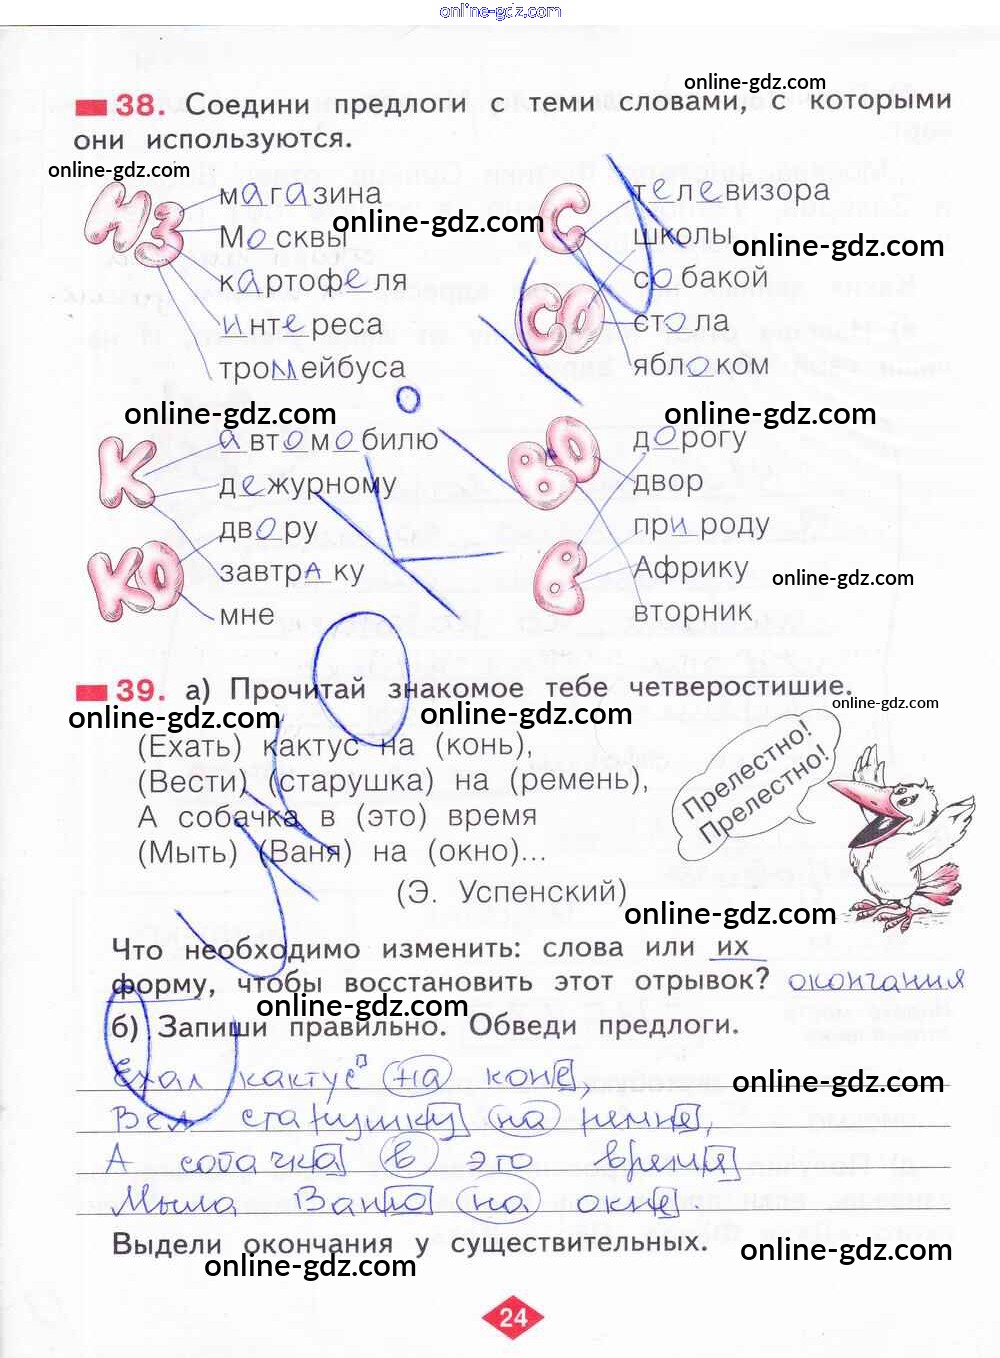 online-gdz.com
38. Соедини предлоги с теми словами, с которыми
они используются.
online-gdz.com
online-gdz.com
ИЗ
магазина
Москвы
картофеля
интереса
тромейбуса
С
СО
телевизора
школы
собакой
стола
яблоком
online-gdz.com
online-gdz.com
online-gdz.com
online-gdz.com
К
КО
автомобилю
дежурному
двору
завтраку
мне
ВО
В
дорогу
двор
природу
Африку
вторник
online-gdz.com
39. а) Прочитай знакомое тебе четверостишие.
online-gdz.com
online-gdz.com
online-gdz.com
(Ехать) кактус на (конь),
(Вести) (старушка) на (ремень),
А собачка в (это) время
(Мыть) (Ваня) на (окно)...
(Э. Успенский)
Прелестно!
Прелестно!
online-gdz.com
Что необходимо изменить: слова или их
форму, чтобы восстановить этот отрывок? окончания
online-gdz.com
б) Запиши правильно. Обведи предлоги.
Ехал кактус на коне,
online-gdz.com
Вел старушку на ремне,
А собачка в это время
Мыла Ваню на окне.
Выдели окончания у существительных.
online-gdz.com
online-gdz.com
24